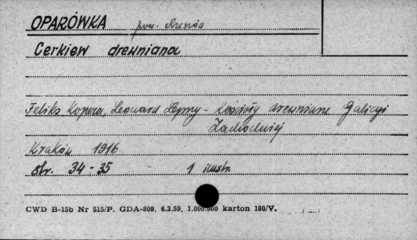 OPARÓWKA pow. Krosno
Cerkiew drewniana
Feliks Kopera, Leonard Lepszy - Kościoły drewniane Galicyi
Zachodniej
Kraków 1916
str. 34-35 1 ilustr.
CWD B-15b Nr 515/P. GDA-809, 6.3.59, 1.000.000 karton 180/V.